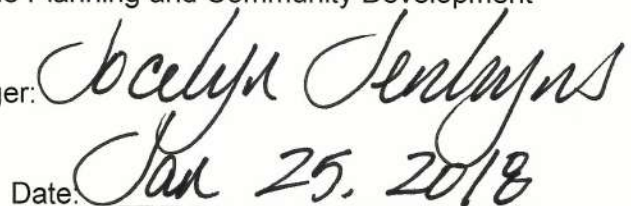 Planning and Community Development
ger: Jocelyn Jenkyns
Date: Jan 25, 2018